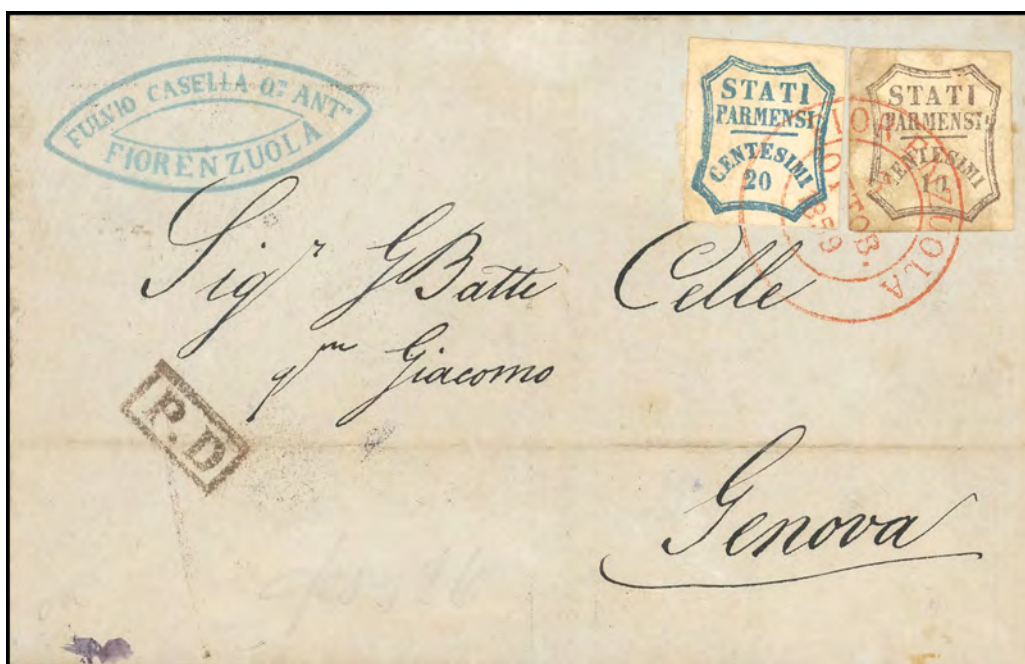 FULVIO CASELLA Qm ANTo
FIORENZUOLA
STATI
PARMENSI
CENTESIMI
20
STATI
PARMENSI
CENTESIMI
10
FIORENZUOLA
OTTOB.
1859
Sigr GBatte Celle
qm Giacomo
P.D
Genova